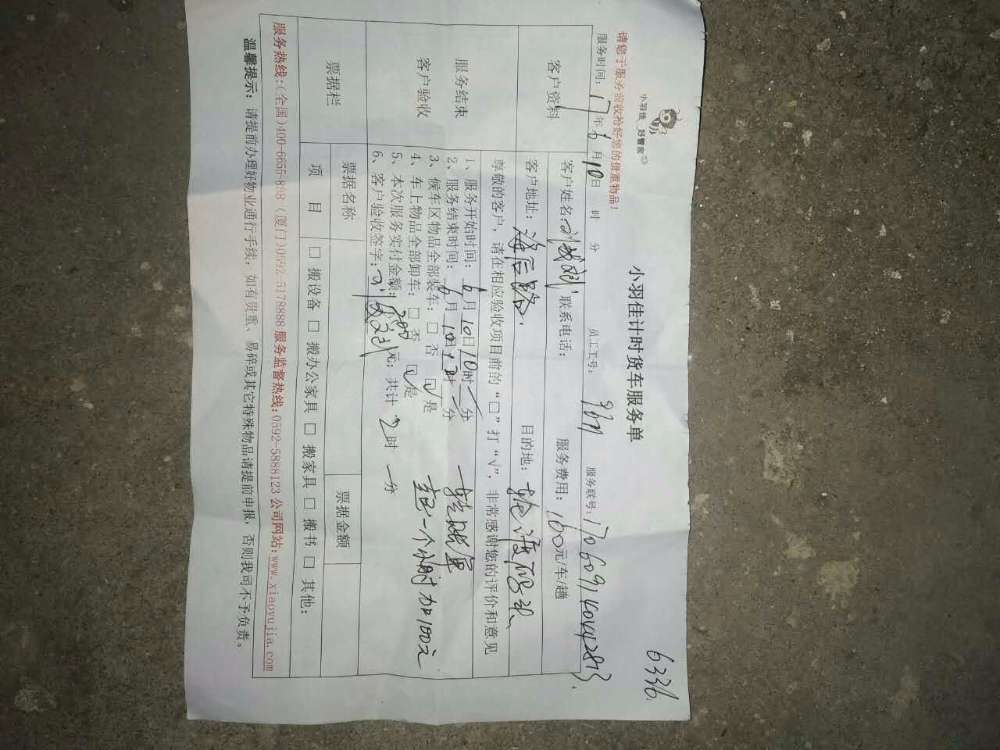 6336
小羽佳 好管家
小羽佳计时货车服务单
请您于服务前收拾好您的贵重物品!
服务时间: 17年6月10日 时 分 员工工号: 服务联号: 1706091404928
客户资料 客户姓名: 联系电话: 服务费用: 160元/车/趟
客户地址: 海信路. 目的地: 轮渡码头.
尊敬的客户,请在相应验收项目前的“□”打“√”,非常感谢您的评价和意见
服务结束
客户验收
1、服务开始时间: 6月10日10时/分
2、服务结束时间: 6月10日12时/分
3、候车区物品全部装车: □否 ☑是
4、车上物品全部卸车: □否 ☑是
5、本次服务实付金额: 200元; 共计 2时 一分
6、客户验收签字:
超一个小时加100元
票据栏 票据名称 票据金额
项目 □搬设备 □搬办公家具 □搬家具 □搬书 □其他:
服务热线:(全国)400-6655-898 (厦门)0592-5178888 服务监督热线:0592-5888123 公司网站:www.xiaoyujia.com
温馨提示: 请提前办理好物业通行手续,如有贵重、易碎或其它特殊物品请提前申报,否则我司不予负责。